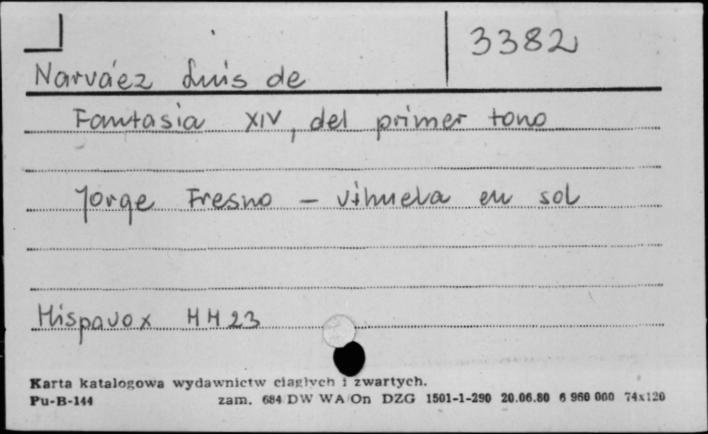 3382
Narváez Luis de
Fantasia XIV, del primer tono
Jorge Fresno - vihuela en sol
Hispavox HH 23
Karta katalogowa wydawnictw ciągłych i zwartych.
Pu-B-144 zam. 684 DW WA/On DZG 1501-1-290 20.06.80 6 960 000 74x120